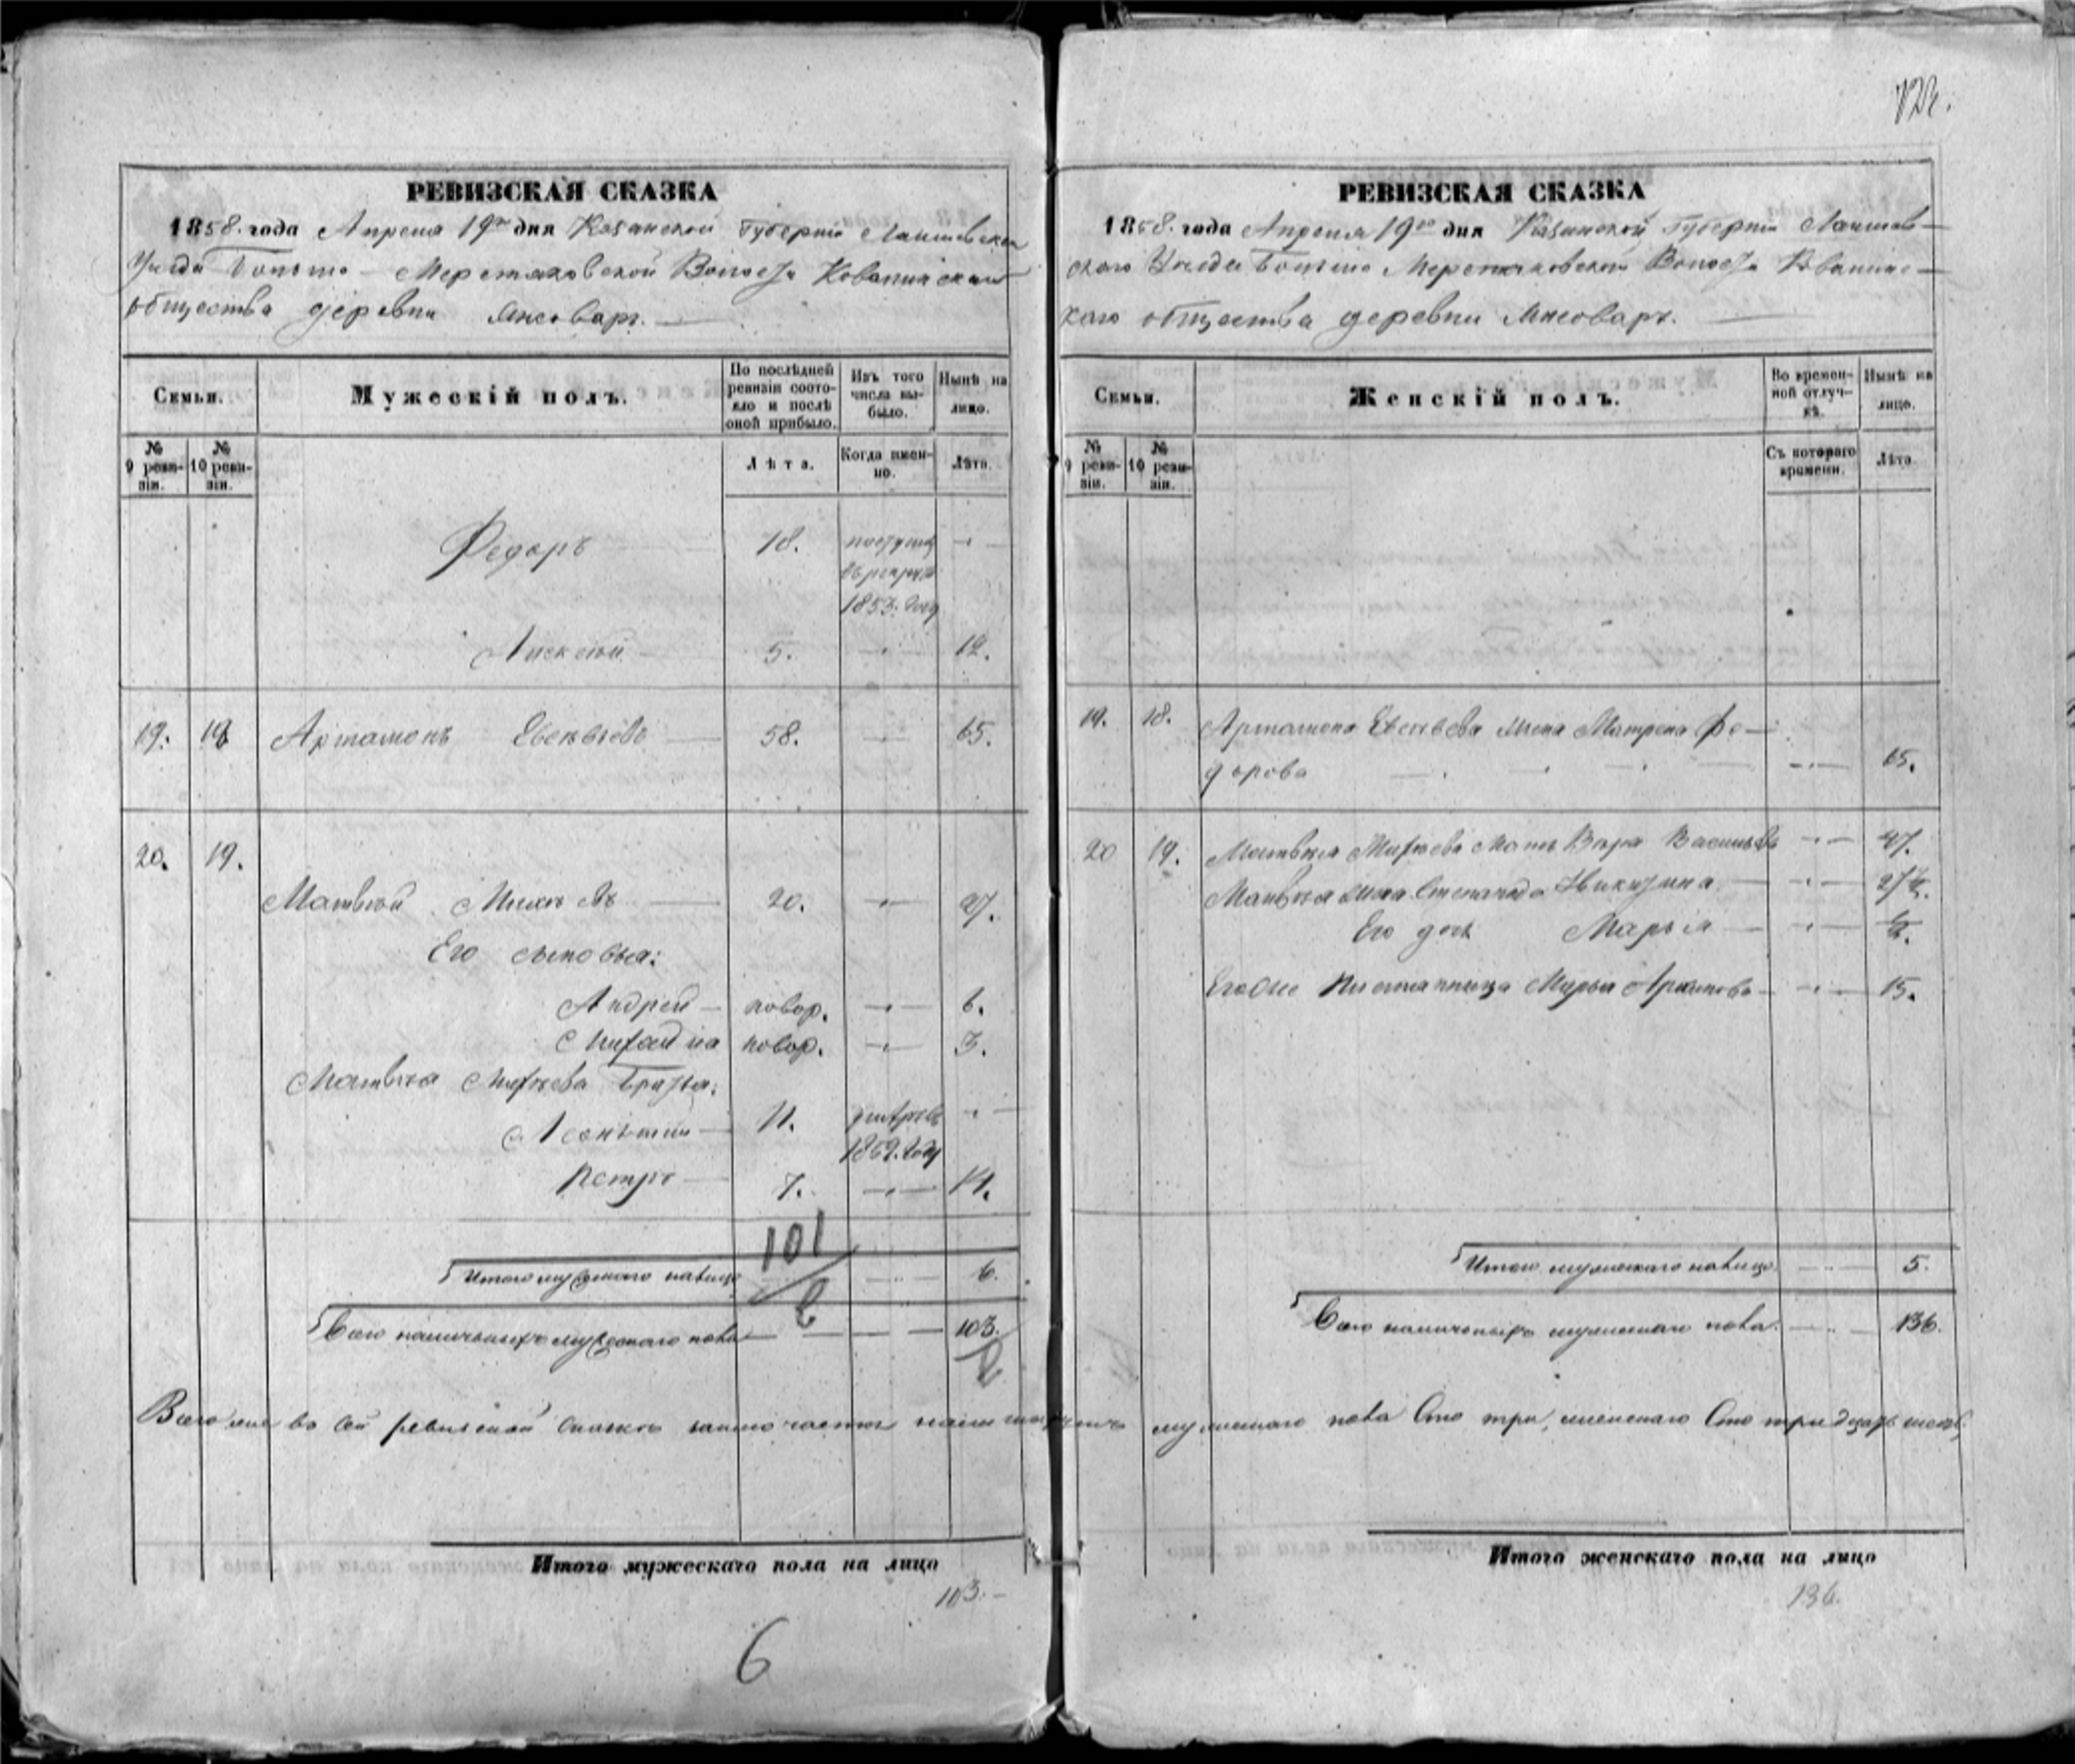 122.
РЕВИЗСКАЯ СКАЗКА
1858. года Апреля 19го дня Казанской Губерніи Лаишевскаго
Уезда Больше-Меретяковской Волости Ковалинскаго
общества деревни Янсоваръ.
Семьи.
Мужескій полъ.
По послѣдней ревизіи состояло и послѣ оной прибыло.
Изъ того числа выбыло.
Нынѣ на лицо.
№ 9 ревизіи.
№ 10 ревизіи.
Лѣта.
Когда именно.
Лѣта.
Федоръ 18. поступилъ въ рекруты 1853. году
Алексѣй 5. 12.
19. 18 Артамонъ Евсѣвьевъ 58. 65.
20. 19.
Матвѣй Михѣевъ 20. 27.
Его сыновья:
Андрей новор. 6.
Михаила новор. 3.
Матвѣя Михѣева братья:
Леонтий 11. умеръ 1852. году
Петръ 7. 14.
101
Итого мужескаго на лицо 6.
Всего наличныхъ мужескаго пола 103.
Всего же во сей ревизской сказкѣ заключается наличныхъ мужескаго пола Сто три, женскаго Сто тридцать шесть,
Итого мужескаго пола на лицо
103.
6
РЕВИЗСКАЯ СКАЗКА
1858. года Апреля 19го дня Казанской Губерніи Лаишев-
скаго Уезда Больше Меретяковской Волости Ковалинс-
каго общества деревни Янсоваръ.
Семьи.
Женскій полъ.
Во временной отлучкѣ.
Нынѣ на лицо.
№ 9 ревизіи.
№ 10 ревизіи.
Съ котораго времени.
Лѣта.
19. 18. Артамона Евсевьева жена Матрена Фе-
дорова 65.
20 19. Матвѣя Михѣева мать Вера Васильева 47.
Матвѣя жена Степанида Никитина 27½.
Его дочь Марья ½.
Его же племянница Марья Архипова 15.
Итого женскаго на лицо. 5.
Всего наличныхъ женскаго пола. 136.
Итого женскаго пола на лицо
136.